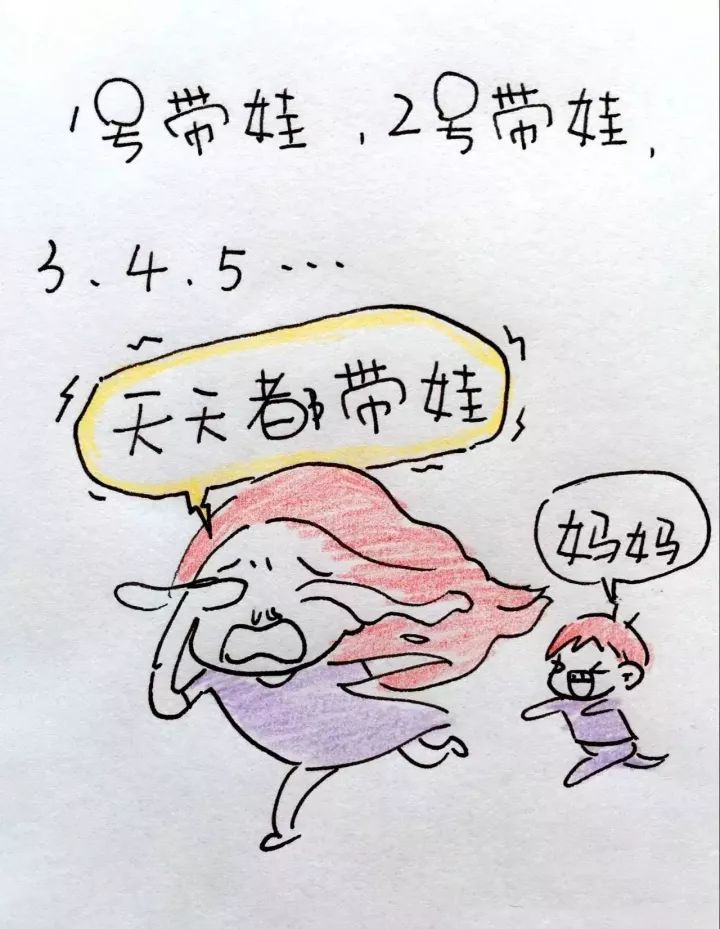 1号带娃,2号带娃,
3.4.5...
天天都带娃
妈妈